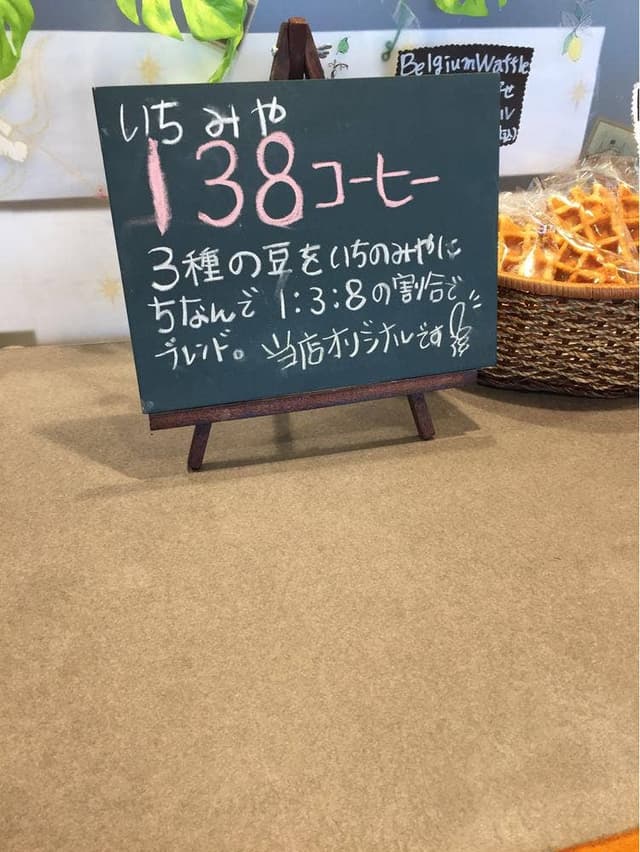 いちみや
138コーヒー
3種の豆をいちのみやに
ちなんで 1:3:8の割合で
ブレンド。 当店オリジナルです
Belgium Waffle